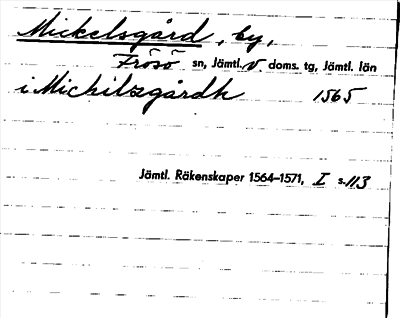 Mickelsgård, by,
Frösö sn, Jämtl. v. doms. tg, Jämtl. län
i Michilzgårdh 1565
Jämtl. Räkenskaper 1564–1571, I s. 113